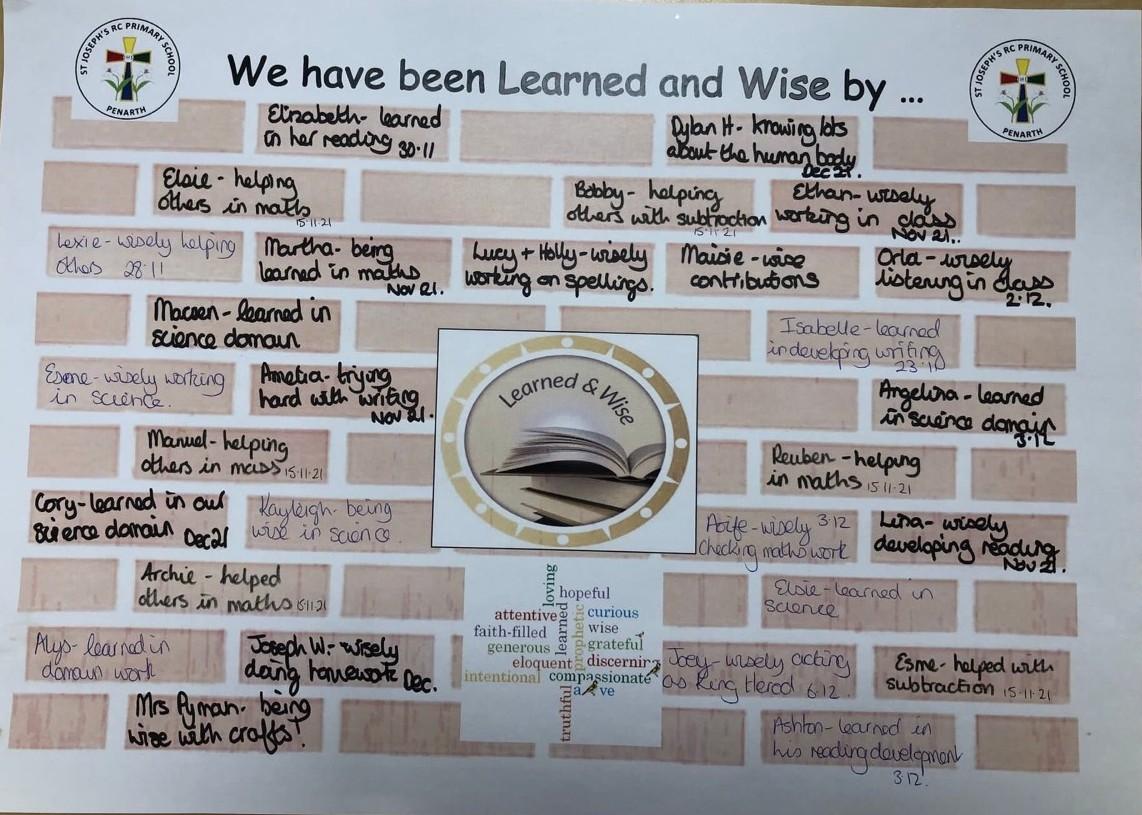 ST JOSEPH'S RC PRIMARY SCHOOL
PENARTH
We have been Learned and Wise by ...
ST JOSEPH'S RC PRIMARY SCHOOL
PENARTH
Elizabeth- learned
in her reading 30.11
Dylan H- knowing lots
about the human body
Dec 21.
Elsie - helping
others in maths
15.11.21
Bobby- helping
others with subtraction
15.11.21
Ethan-wisely
working in class
Nov 21..
Lexie-wisely helping
others 28.11
Martha- being
learned in maths
Nov 21.
Lucy + Holly-wisely
working on spellings.
Maisie - wise
contributions
Orla - wisely
listening in class
2.12.
Macsen - learned in
science domain
Isabelle-learned
in developing writing
23.11
Esme-wisely working
in science.
Amelia- trying
hard with writing
Nov 21.
Learned & Wise
Angelina - learned
in science domain
3.12
Manuel-helping
others in mass 15.11.21
Reuben -helping
in maths 15.11.21
Cory-learned in our
science domain Dec 21
Kayleigh- being
wise in science.
Aoife-wisely 3.12
checking maths work
Lina- wisely
developing reading
Nov 21.
Archie - helped
others in maths 15.11.21
loving
hopeful
attentive
learned
prophetic
curious
faith-filled
wise
generous
grateful
eloquent
discerning
intentional
compassionate
truthful
a ve
Elsie-learned in
science
Alys- learned in
domain work
Joseph W.- wisely
doing homework Dec.
Joey- wisely acting
as King Herod 6.12.
Esme- helped with
subtraction 15.11.21
Mrs Pyman- being
wise with crafts!
Ashton-learned in
his reading development
3.12.